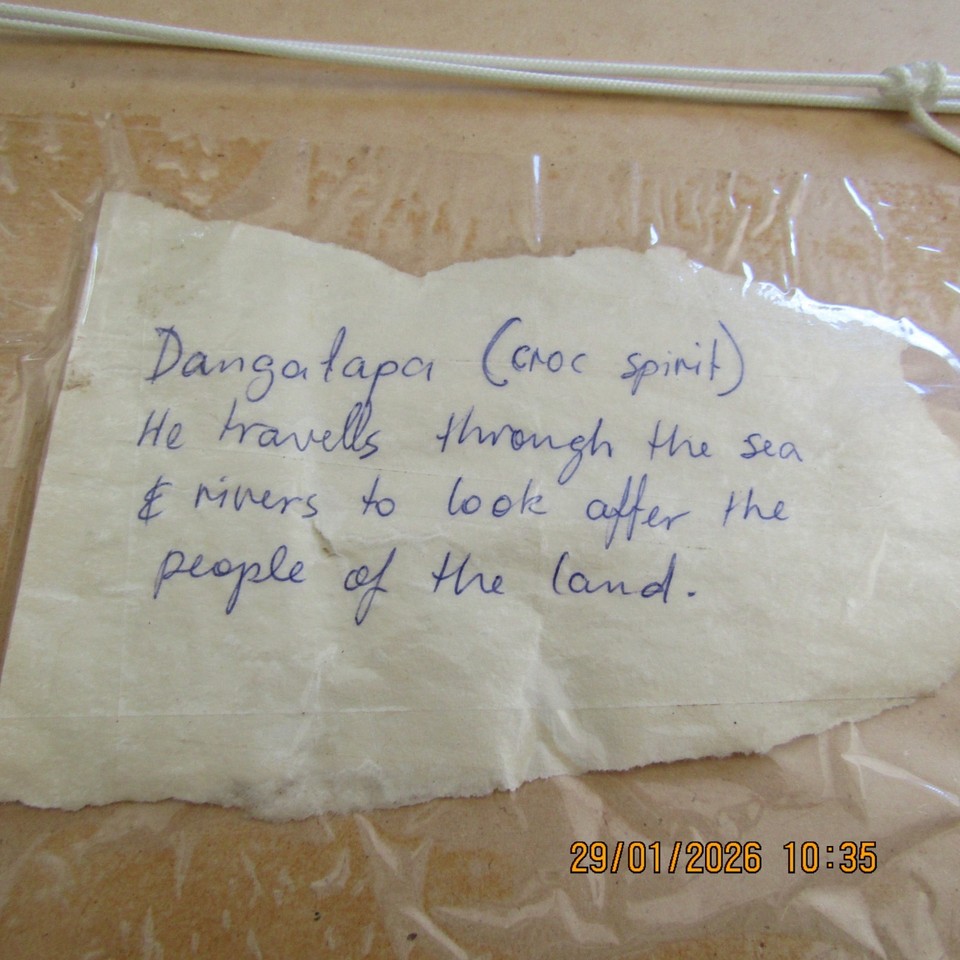 Dangalapa (croc spirit)
He travells through the sea
& rivers to look after the
people of the land.
29/01/2026 10:35